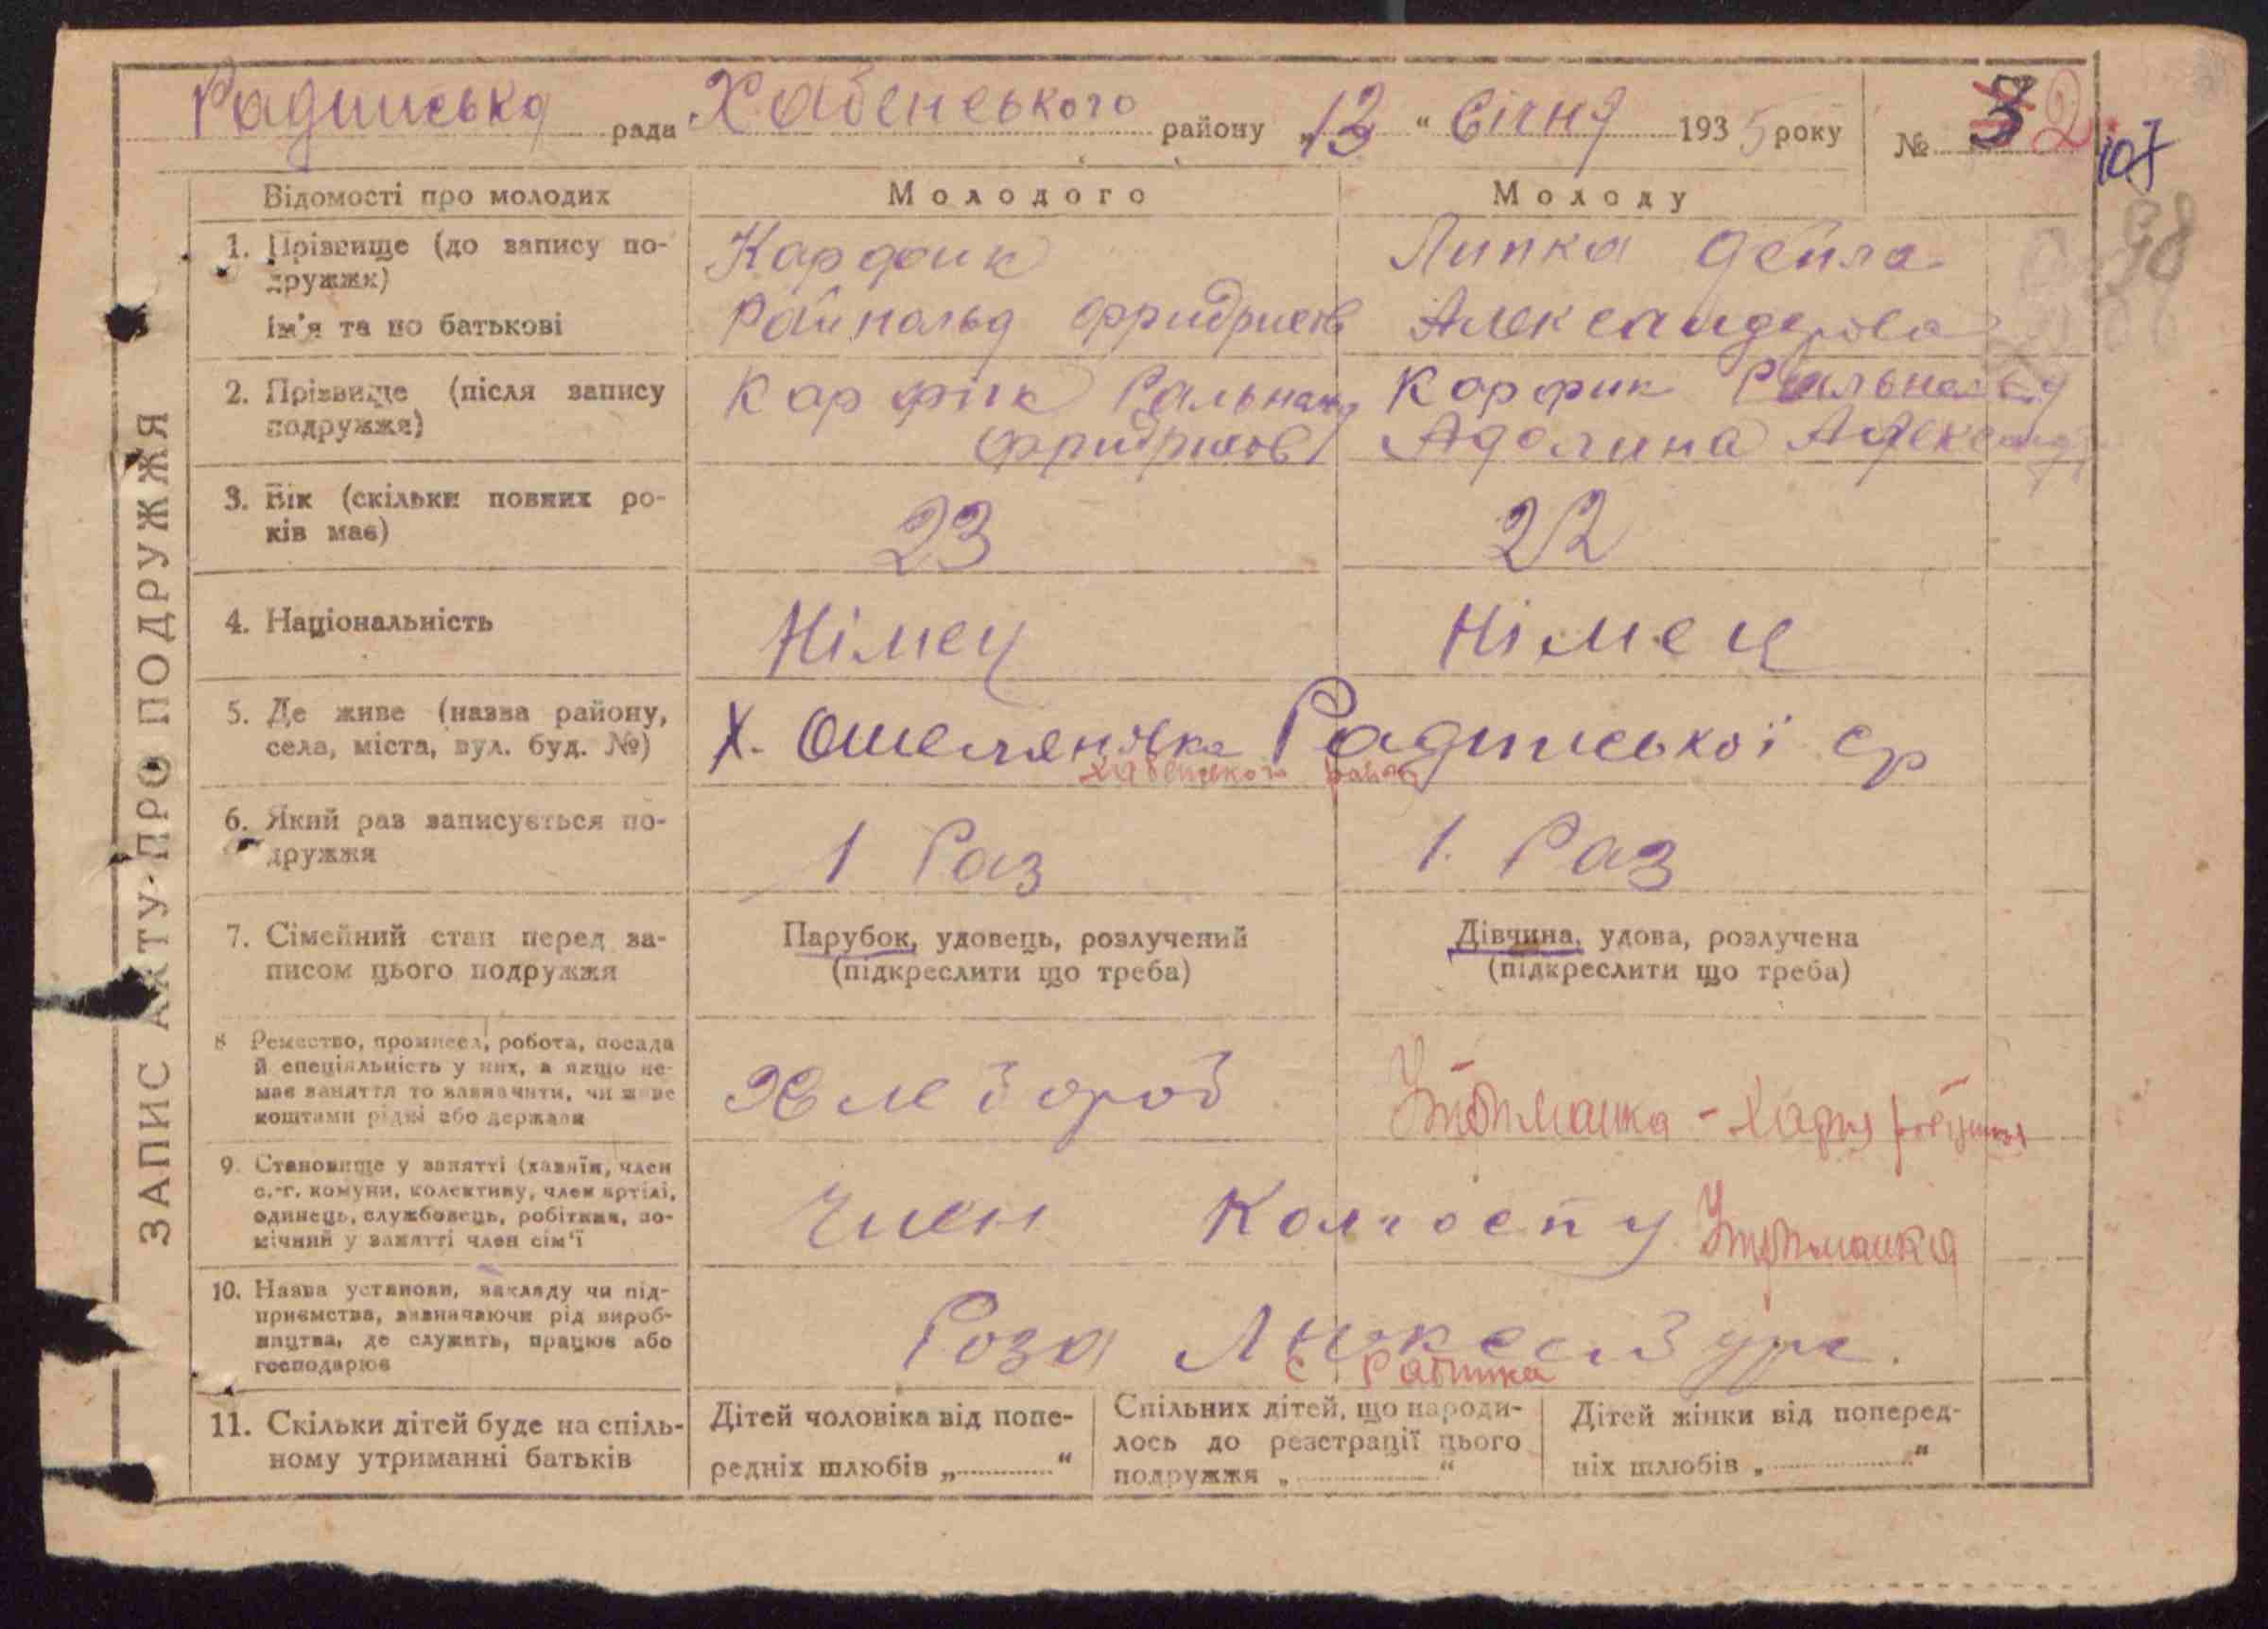 Радинська рада Хабенського району „12“ Січня 1935 року № 3 2
107
98
ЗАПИС АКТУ ПРО ПОДРУЖЖЯ
Відомості про молодих
Молодого
Молоду
1. Прізвище (до запису по-
дружжя)
ім'я та по батькові
Карфик
Райнольд Фридрихов
Липка
Александрова
2. Прізвище (після запису
подружжя)
КарфікРальнальд
Фридрихов
Корфик
Адолина Александр
3. Вік (скільки повних ро-
ків має)
23
22
4. Національність
Німец
Німец
5. Де живе (назва району,
села, міста, вул. буд. №)
Х. Ошелянівка Радинської ср
Хабенского района
6. Який раз записується по-
дружжя
1 Раз
1. Раз
7. Сімейний стан перед за-
писом цього подружжя
Парубок, удовець, розлучений
(підкреслити що треба)
Дівчина, удова, розлучена
(підкреслити що треба)
8 Ремество, промисел, робота, посада
й спеціяльність у них, а якщо не-
має заняття то зазначити, чи живе
коштами рідні або держави
Хлебороб
Утриманка -
9. Становище у занятті (хазяїн, член
с.-г. комуни, колективу, член артілі,
одинець, службовець, робітник, по-
мічний у занятті член сім'ї
Член Колгоспу Утриманка
10. Назва установи, закладу чи під-
приємства, зазначаючи рід вироб-
ництва, де служить, працює або
господарює
Роза Люксембург.
11. Скільки дітей буде на спіль-
ному утриманні батьків
Дітей чоловіка від попе-
редніх шлюбів „............“
Спільних дітей, що народи-
лось до реєстрації цього
подружжя „............“
Дітей жінки від поперед-
ніх шлюбів „............“